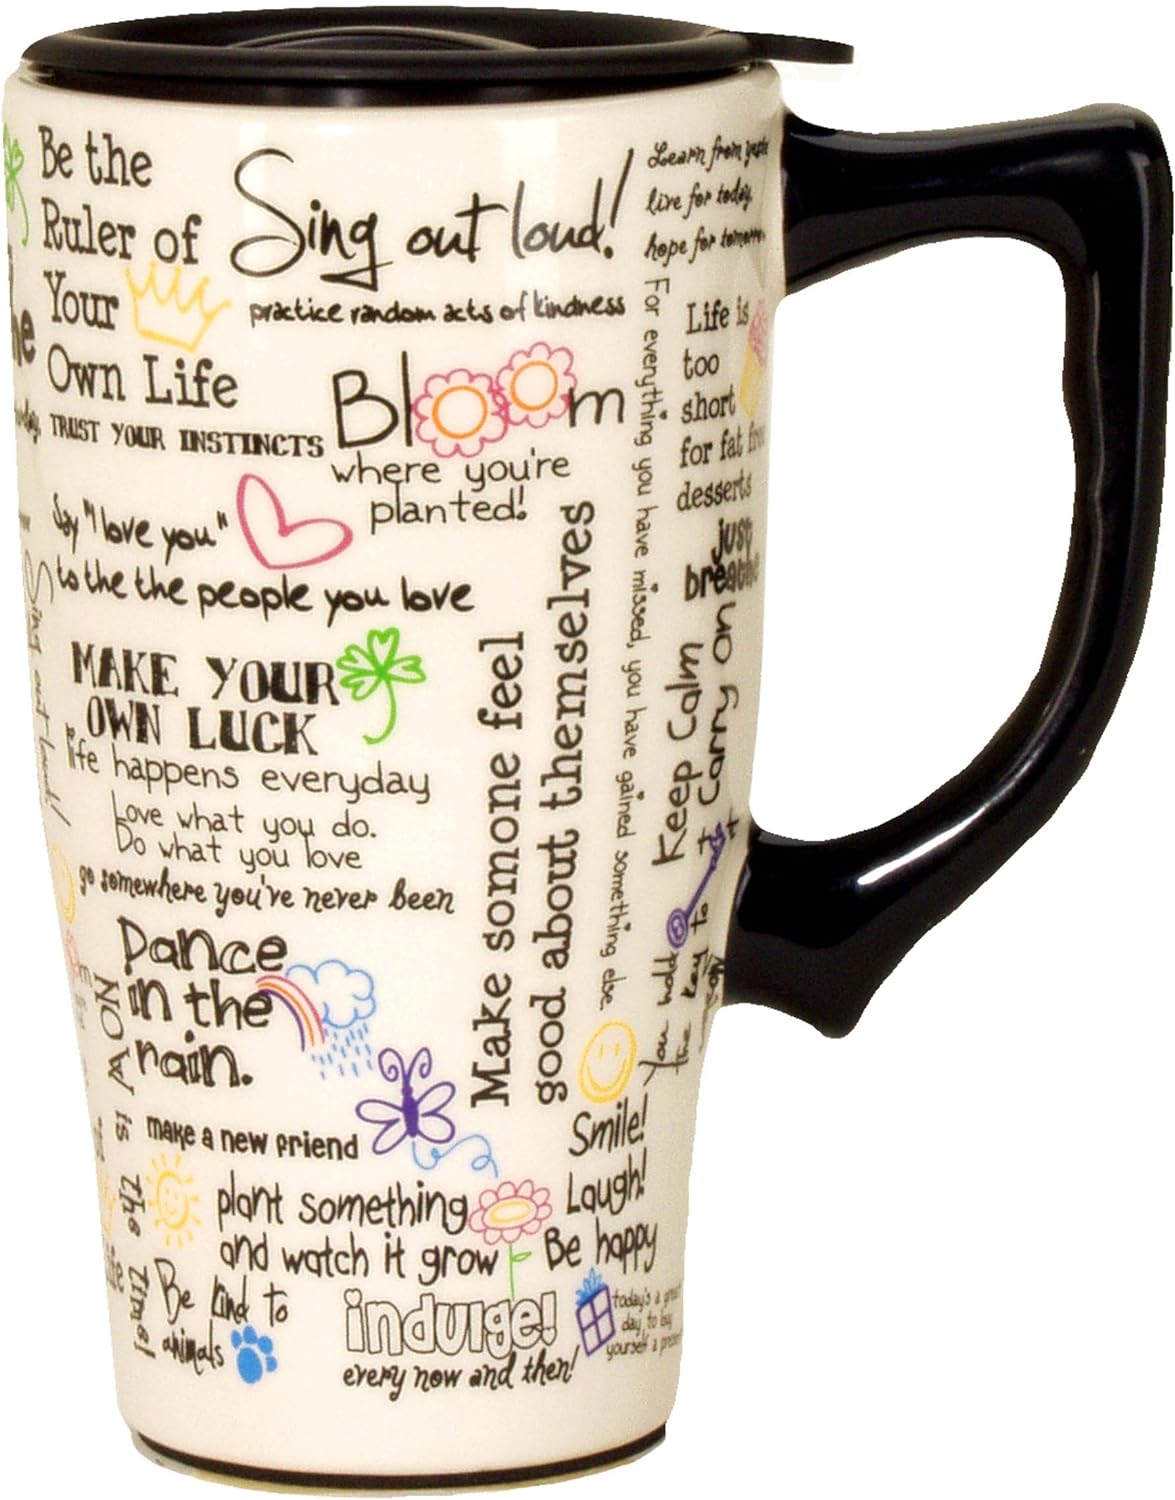 Be the
Ruler of
Your
Own Life
TRUST YOUR INSTINCTS
Sing out loud!
practice random acts of kindness
Bloom
where you're
planted!
Say "I love you"
to the the people you love
MAKE YOUR
OWN LUCK
life happens everyday
Love what you do.
Do what you love
go somewhere you've never been
Dance
in the
rain.
NOW is the time!
make a new friend
plant something
and watch it grow
Be kind to
animals
indulge!
every now and then!
Make somone feel
good about themselves
Learn from
live for today,
hope for
For everything you have missed, you have gained something else.
Life is
too
short
for fat
desserts
just
breathe
Keep Calm
Carry On
You hold
the key to
Smile!
Laugh!
Be happy
today's a great
day to buy
yourself a
Sing out loud!